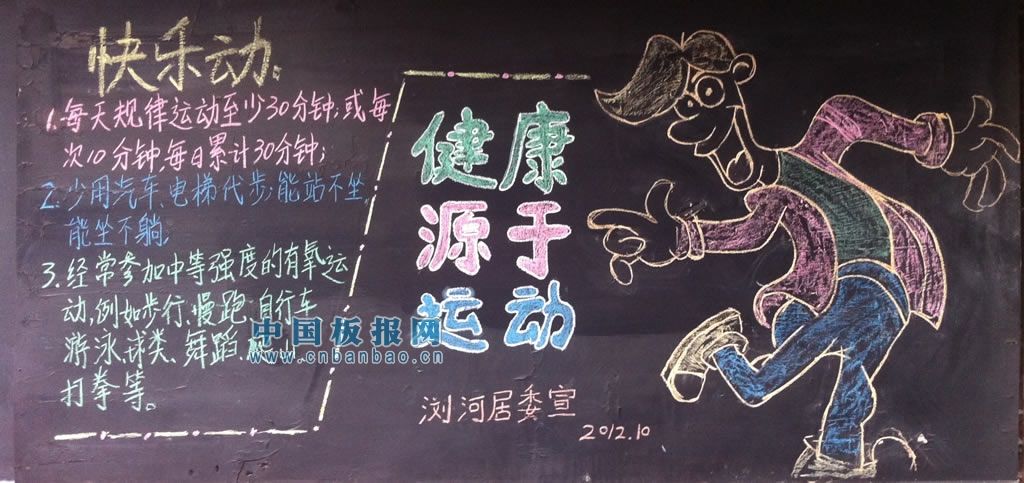 快乐动。
1.每天规律运动至少30分钟;或每
次10分钟,每日累计30分钟;
2.少用汽车、电梯代步;能站不坐,
能坐不躺,
3.经常参加中等强度的有氧运
动,例如步行、慢跑、自行车
游泳、球类、舞蹈、
打拳等。
健康
源于
运动
浏河居委宣
2012.10
中国板报网
www.cnbanbao.cn